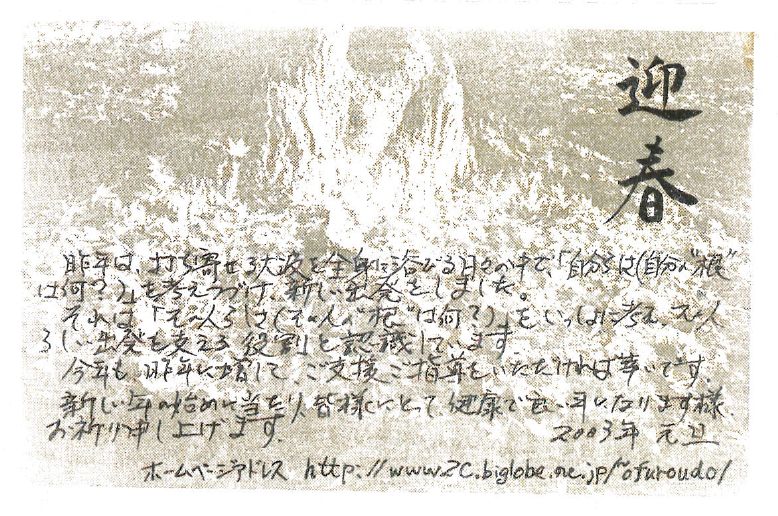 迎春
昨年は、打ち寄せる大波を全身に浴びる日々の中で、「自分らしさ(自分の“根”
は何?)」を考えつづけ、新しい出発をしました。
それは「その人らしさ(その人の“根”は何?)」をいっしょに考え、その人
らしい出発を支える役割と認識しています。
今年も、昨年に増して、ご支援ご指導をいただければ幸いです。
新しい年の始めに当たり、皆様にとって、健康で良い年になります様、
お祈り申し上げます。
2003年 元旦
ホームページアドレス http://www2c.biglobe.ne.jp/~ofuroudo/